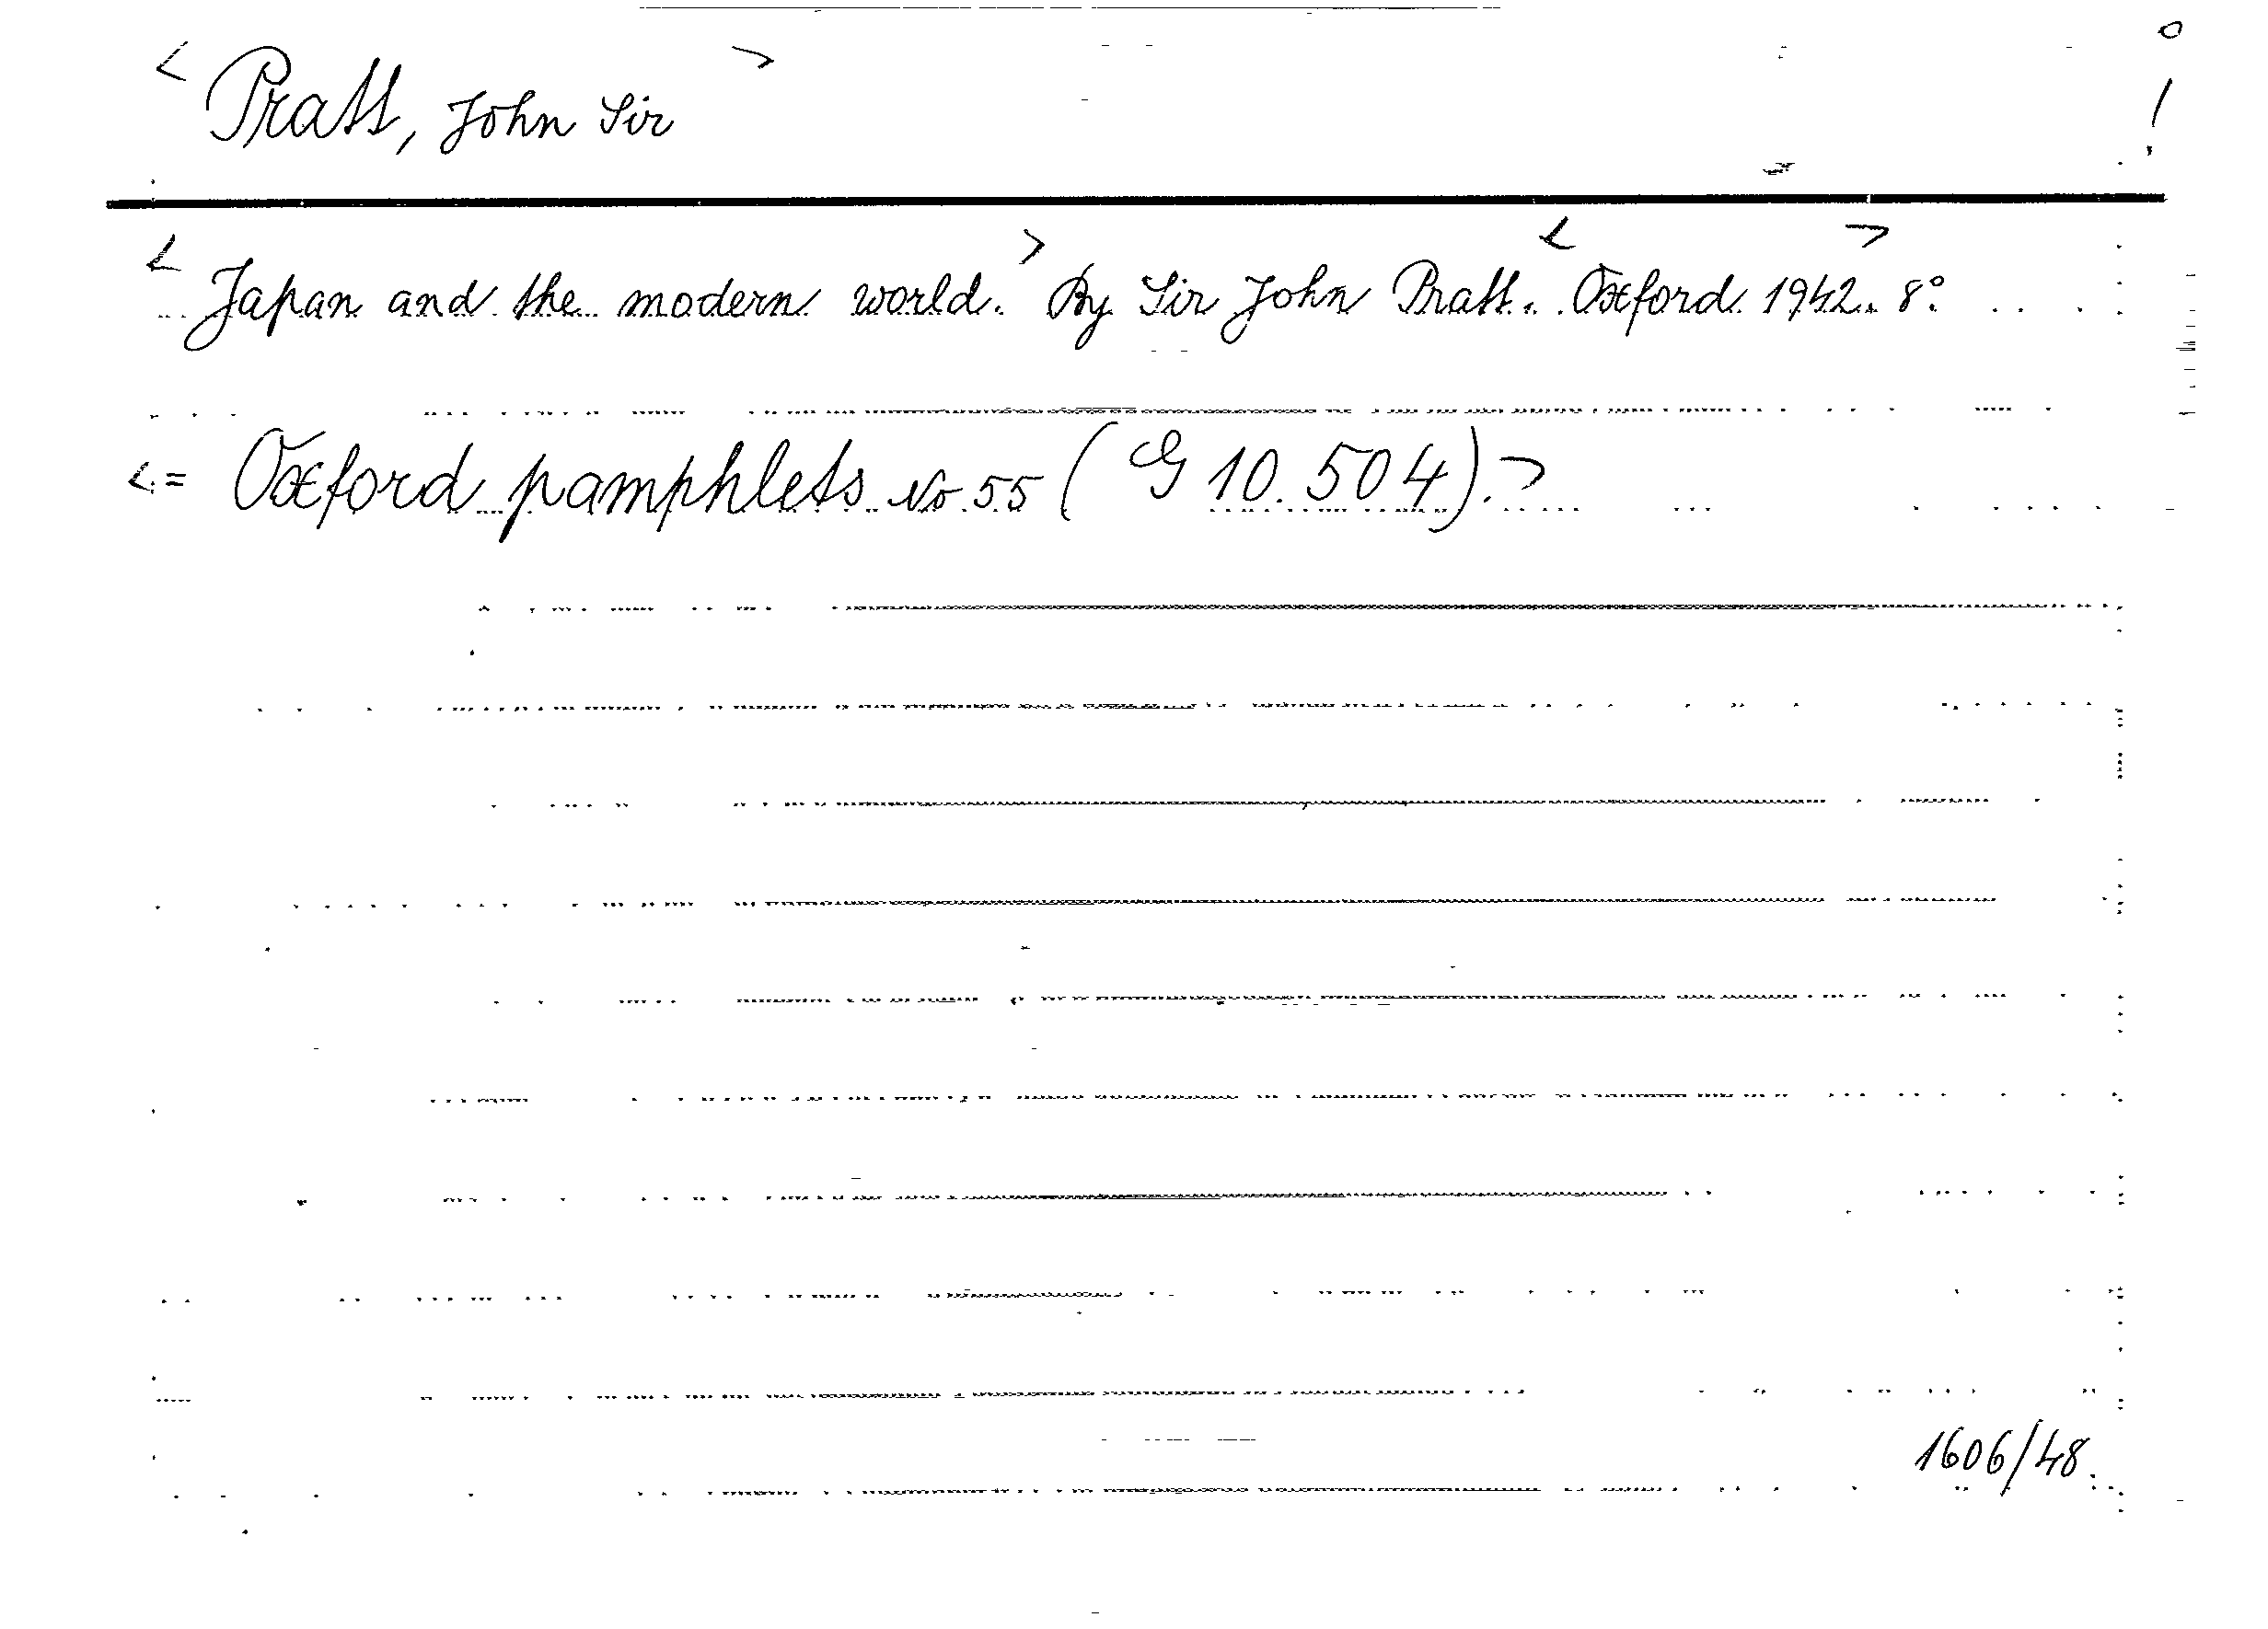 < Pratt, John Sir >
< Japan and the modern world. > By Sir John Pratt. < Oxford 1942. > 8°
< = Oxford pamphlets No 55 ( G 10.504). >
1606/48.